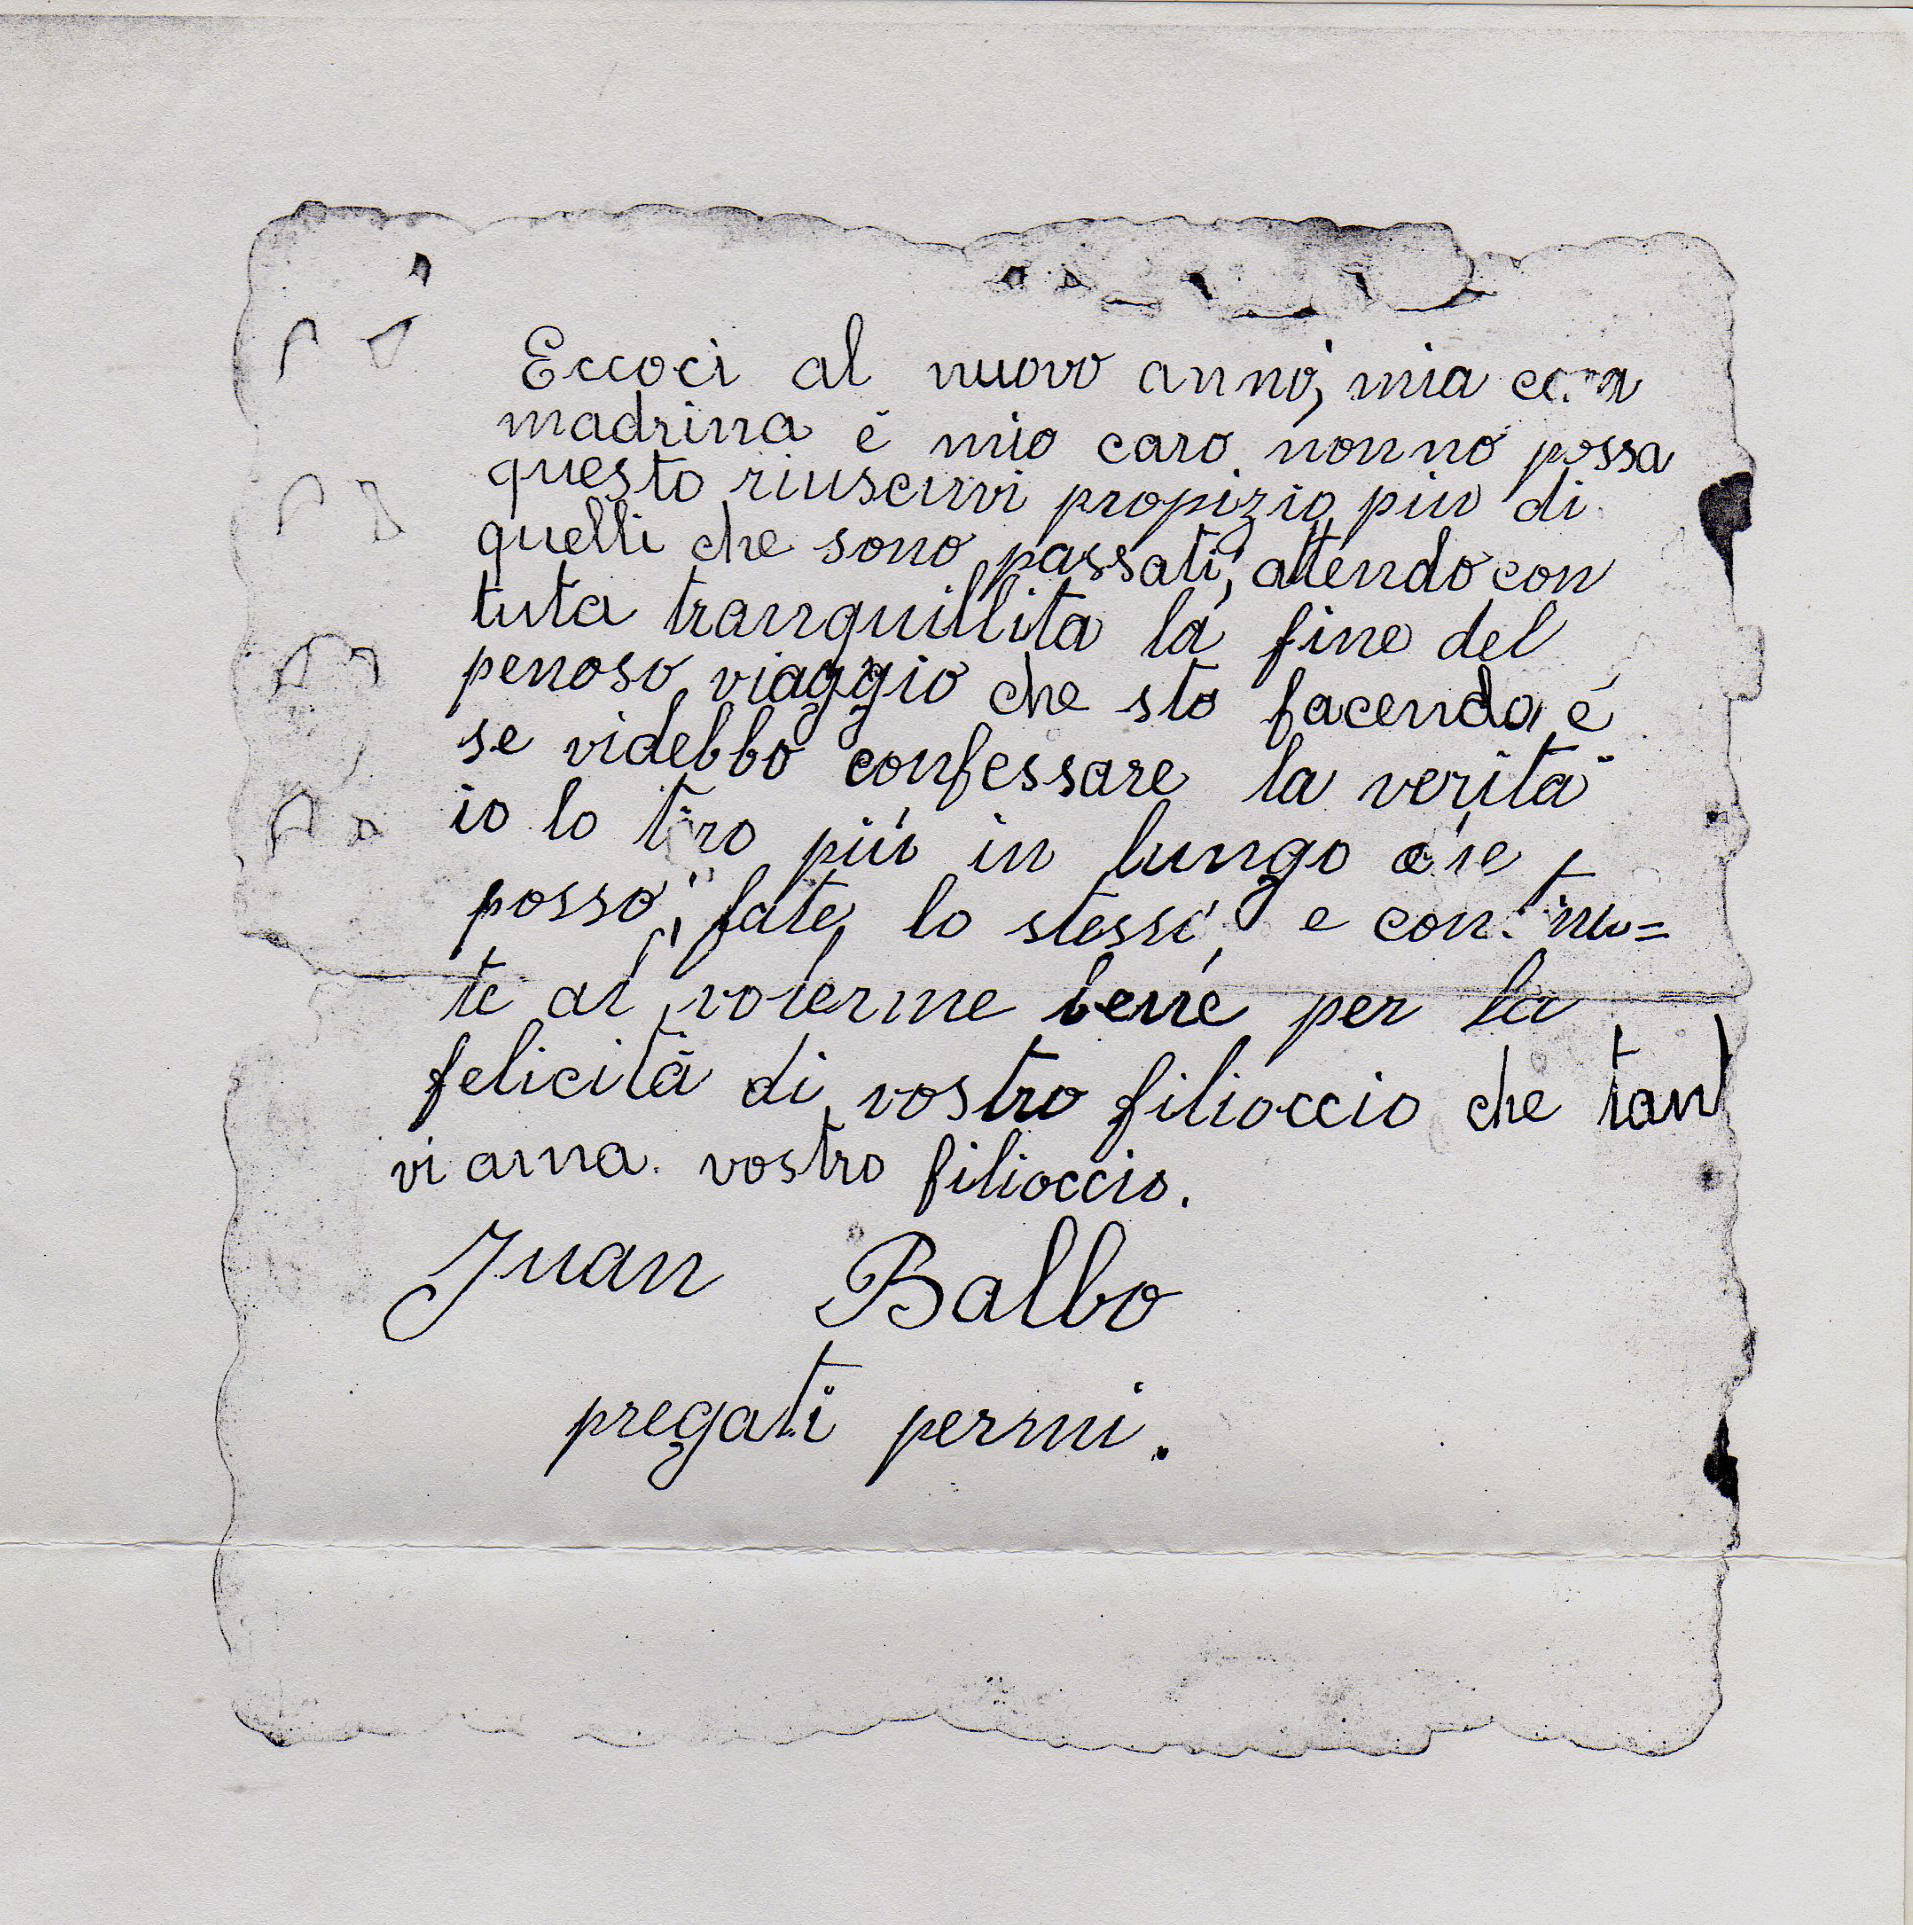 Eccoci al nuovo anno, mia cara
madrina é mio caro nonno possa
questo riuscirvi propizio piu di
quelli che sono passati, attendo con
tuta tranquillita la fine del
penoso viaggio che sto facendo é
se videbbo confessare la verita
io lo tiro più in lungo che
posso, fate lo stessi, e continu=
te ai volerme bene per la
felicità di vostro filioccio che tant
vi ama. vostro filioccio.
Juan Balbo
pregati permi.